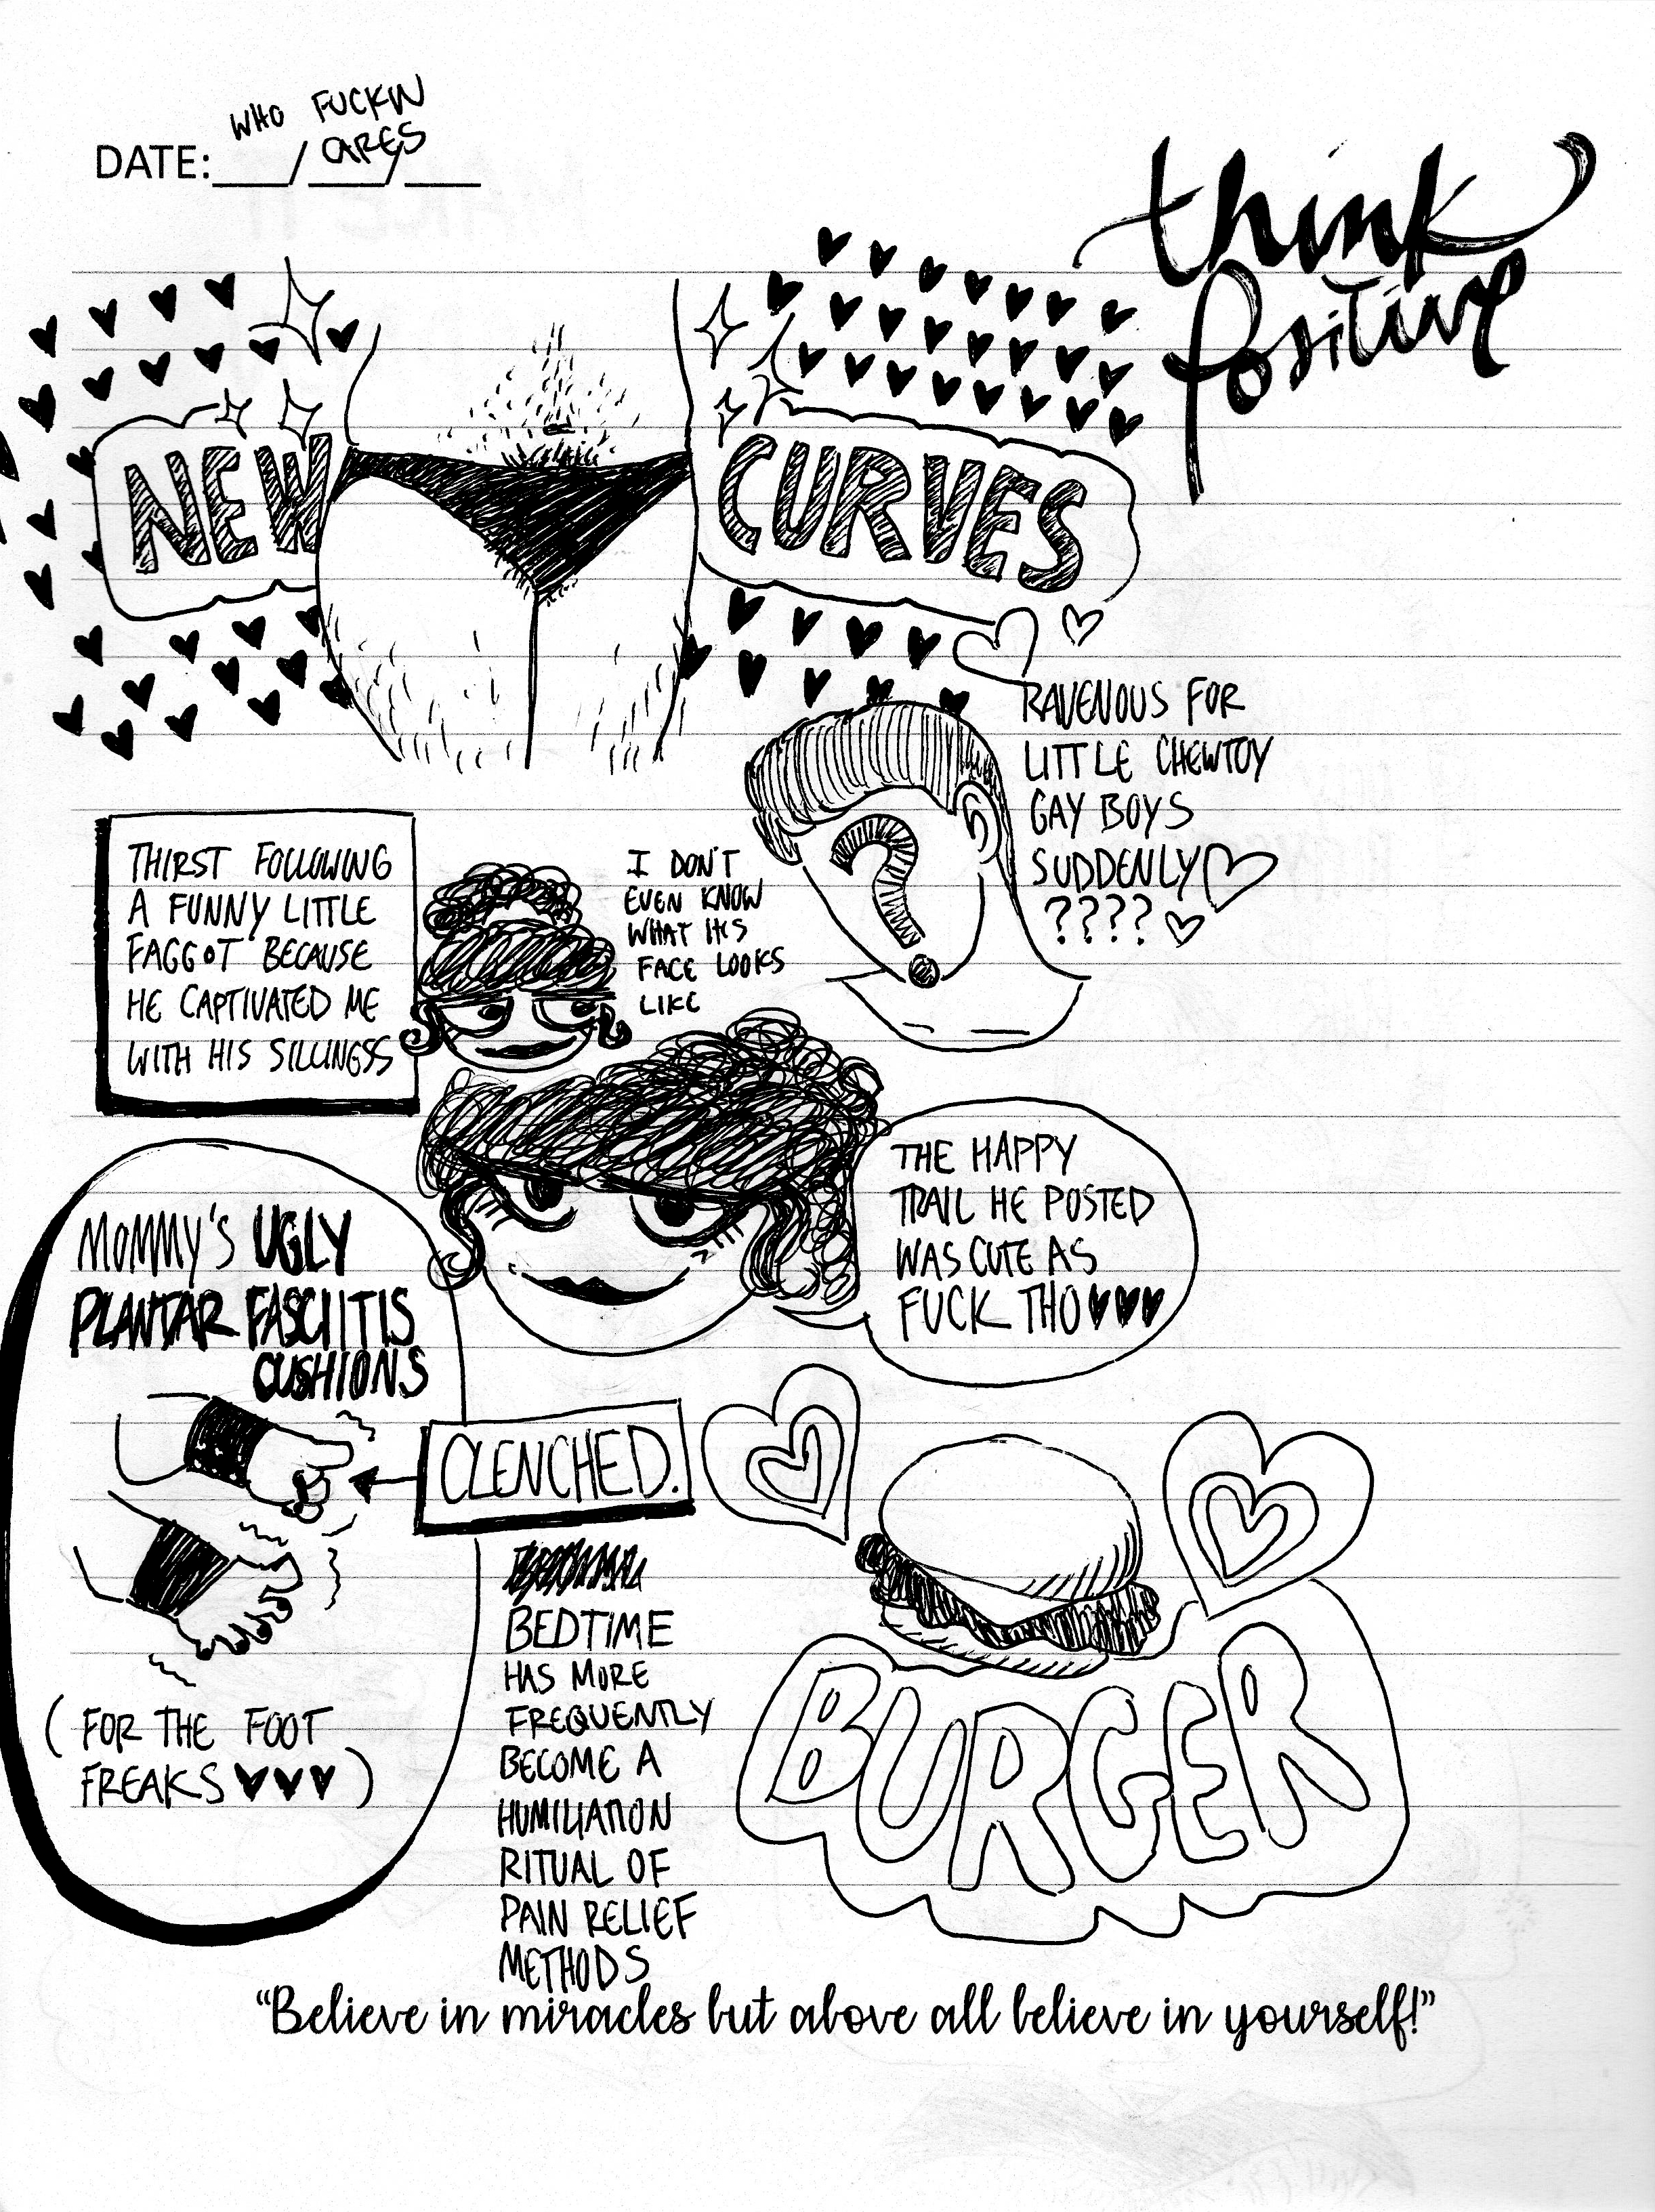 WHO FUCKIN
CARES
DATE:___/___/___
think
positive
NEW
CURVES
RAVENOUS FOR
LITTLE CHEWTOY
GAY BOYS
SUDDENLY
????
THIRST FOLLOWING
A FUNNY LITTLE
FAGGOT BECAUSE
HE CAPTIVATED ME
WITH HIS SILLINGSS
I DON'T
EVEN KNOW
WHAT
FACE LOOKS
LIKE
?
THE HAPPY
TRAIL HE POSTED
WAS CUTE AS
FUCK THO♥♥♥
MOMMY'S UGLY
PLANTAR FASCIITIS
CUSHIONS
CLENCHED.
(FOR THE FOOT
FREAKS ♥♥♥)
BEDTIME
HAS MORE
FREQUENTLY
BECOME A
HUMILIATION
RITUAL OF
PAIN RELIEF
METHODS
BURGER
"Believe in miracles but above all believe in yourself!"